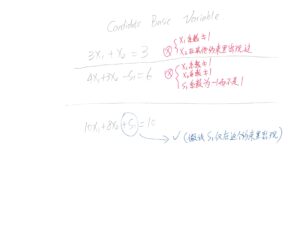 Candidate Basic Variable
3x₁ + x₂ = 3 ⊗ { x₁系数≠1
x₂在其他约束里出现过
4x₁+3x₂-S₁=6 ⊗ { x₁系数≠1
x₂系数≠1
S₁系数为-1而不是1
10x₁+8x₂+S₂=10
✓ (假设S₂仅在这个约束里出现)